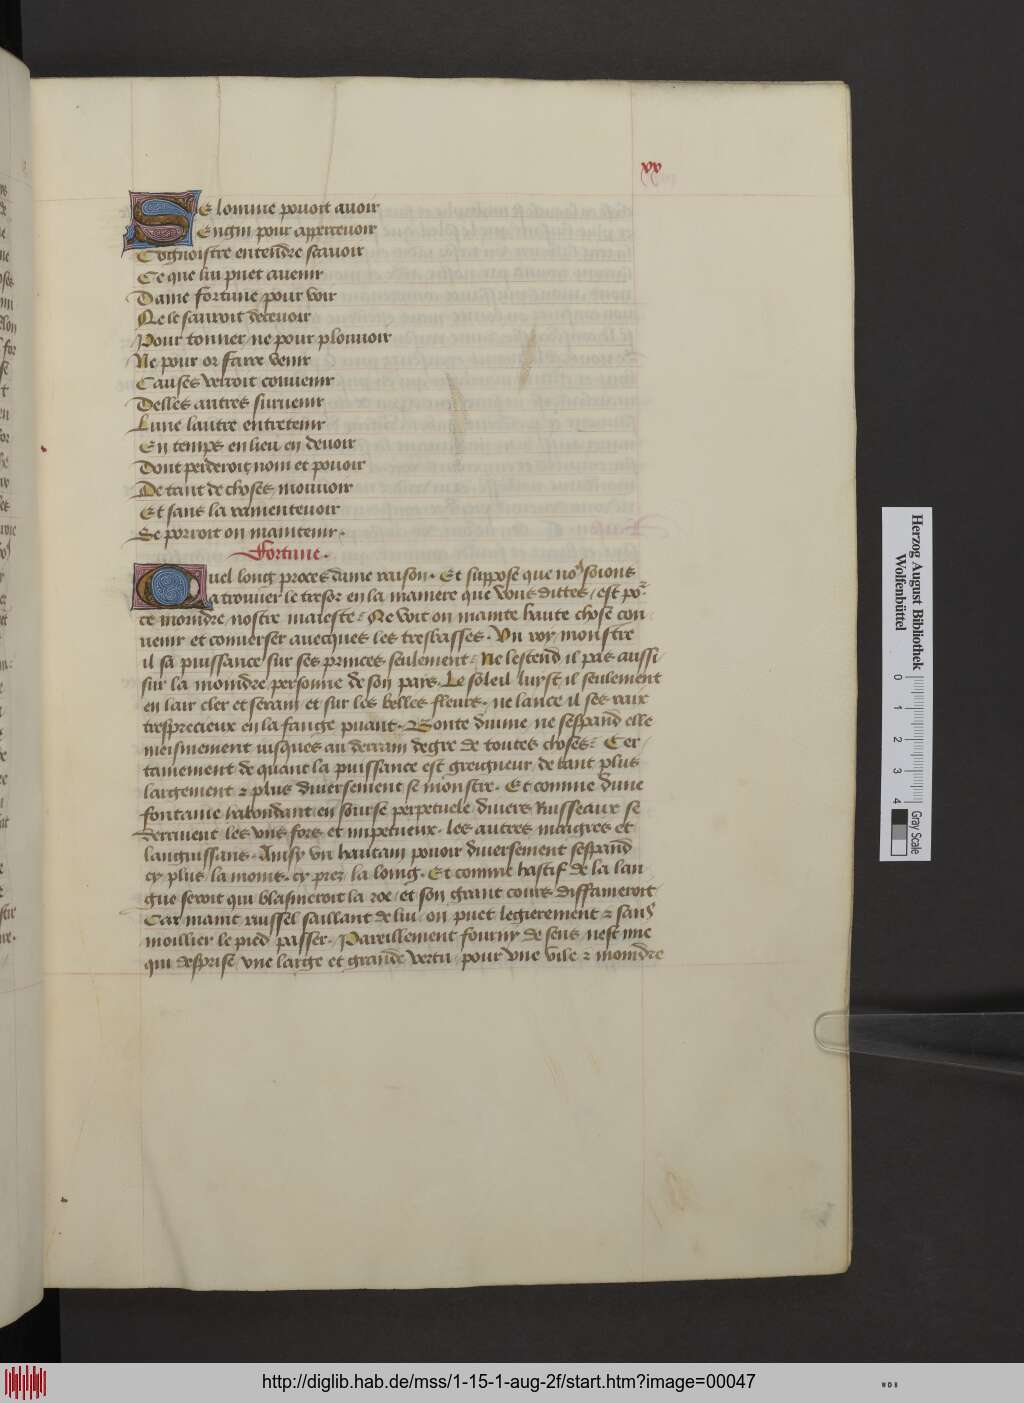 xx
SE lomme pouoit auoir
Engin pour apperceuoir
Cognoistre entendre scauoir
Ce que lui puet auenir
Dame fortune pour voir
Ne le sauroit deceuoir
Pour tonner ne pour plouuoir
Ne pour or faire venir
Causes verroit conuenir
Delles autres suruenir
Lune lautre entretenir
En temps en lieu en deuoir
Dont perderoit nom et pouoir
De tant de choses mouuoir
Et sans la ramenteuoir
Se porroit on maintenir.
Fortune.
Quel long proces dame raison. Et suppose que nos soions
a trouuer le tresor en la maniere que vous dittes, est po'
ce moindre nostre maieste. Ne voit on mainte haute chose con
uenir et conuerser auecques les tresbasses. Vn roy monstre
il sa puissance sur ses princes seulement. Ne lestend il pas aussi
sur la moindre personne de son pays. Le soleil luyst il seulement
en lair cler et serain et sur les belles fleurs. ne lance il ses raix
tresprecieux en la fange puant. Bonte diuine ne sespand elle
meismement iusques au derrain degre de toutes choses. Cer
tainement de quant la puissance est greigneur de tant plus
largement et plus diuersement se monstre. Et comme dune
fontaine habondant en sourse perpetuele diuers Ruisseaux se
deriuent les vns fors et impetueux. les autres maigres et
languissans. Ainsy vn hautain pouoir diuersement sespand
cy plus la moins. cy prez la loing. Et comme hastif de la lan
gue seroit qui blasmeroit la roe et son grant cours diffameroit
Car maint russel saillant de lui on puet legierement et sans
moullier le pied passer. Pareillement fourny de sens nest mie
qui desprise vne large et grande vertu pour vne vile et moindre
Herzog August Bibliothek
Wolfenbüttel
0 1 2 3 4
Gray Scale
http://diglib.hab.de/mss/1-15-1-aug-2f/start.htm?image=00047
WDB